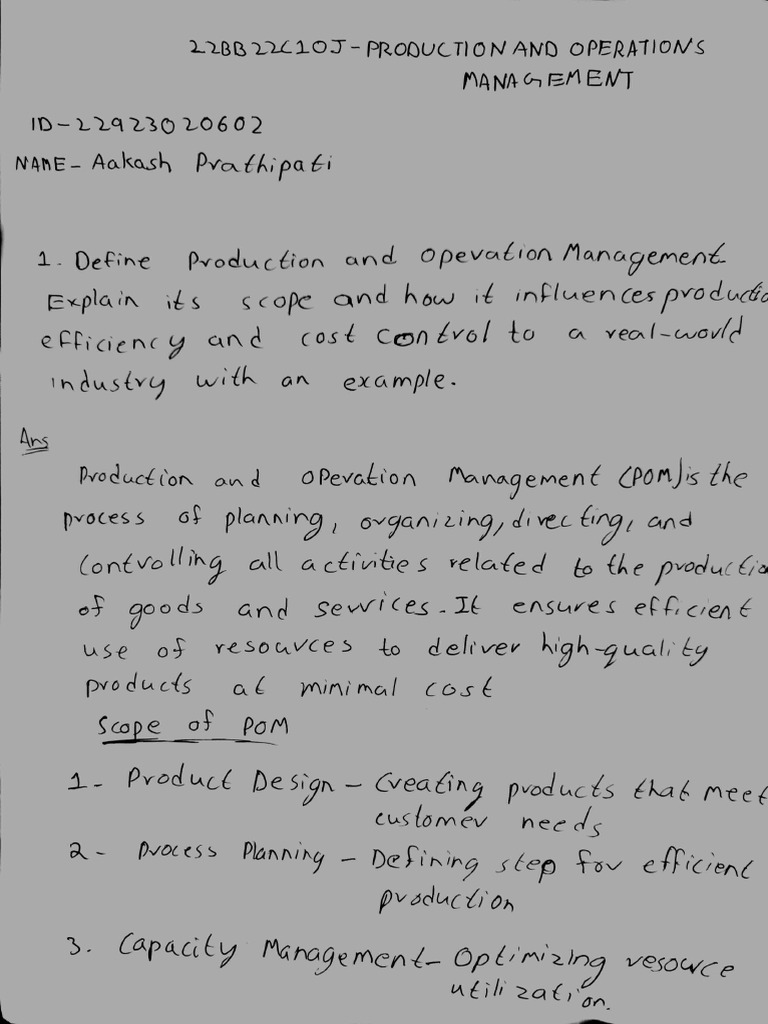 22BB22C10J-PRODUCTION AND OPERATIONS
MANAGEMENT
ID-22923020602
NAME- Aakash Prathipati
1. Define Production and Operation Management.
Explain its scope and how it influences productio
efficiency and cost control to a real-world
industry with an example.
Ans
Production and Operation Management (POM) is the
process of planning, organizing, directing, and
controlling all activities related to the productio
of goods and services. It ensures efficient
use of resources to deliver high-quality
products at minimal cost
Scope of POM
1- Product Design - Creating products that meet
customer needs
2- Process Planning - Defining step for efficient
production
3. Capacity Management- Optimizing resource
utilization.